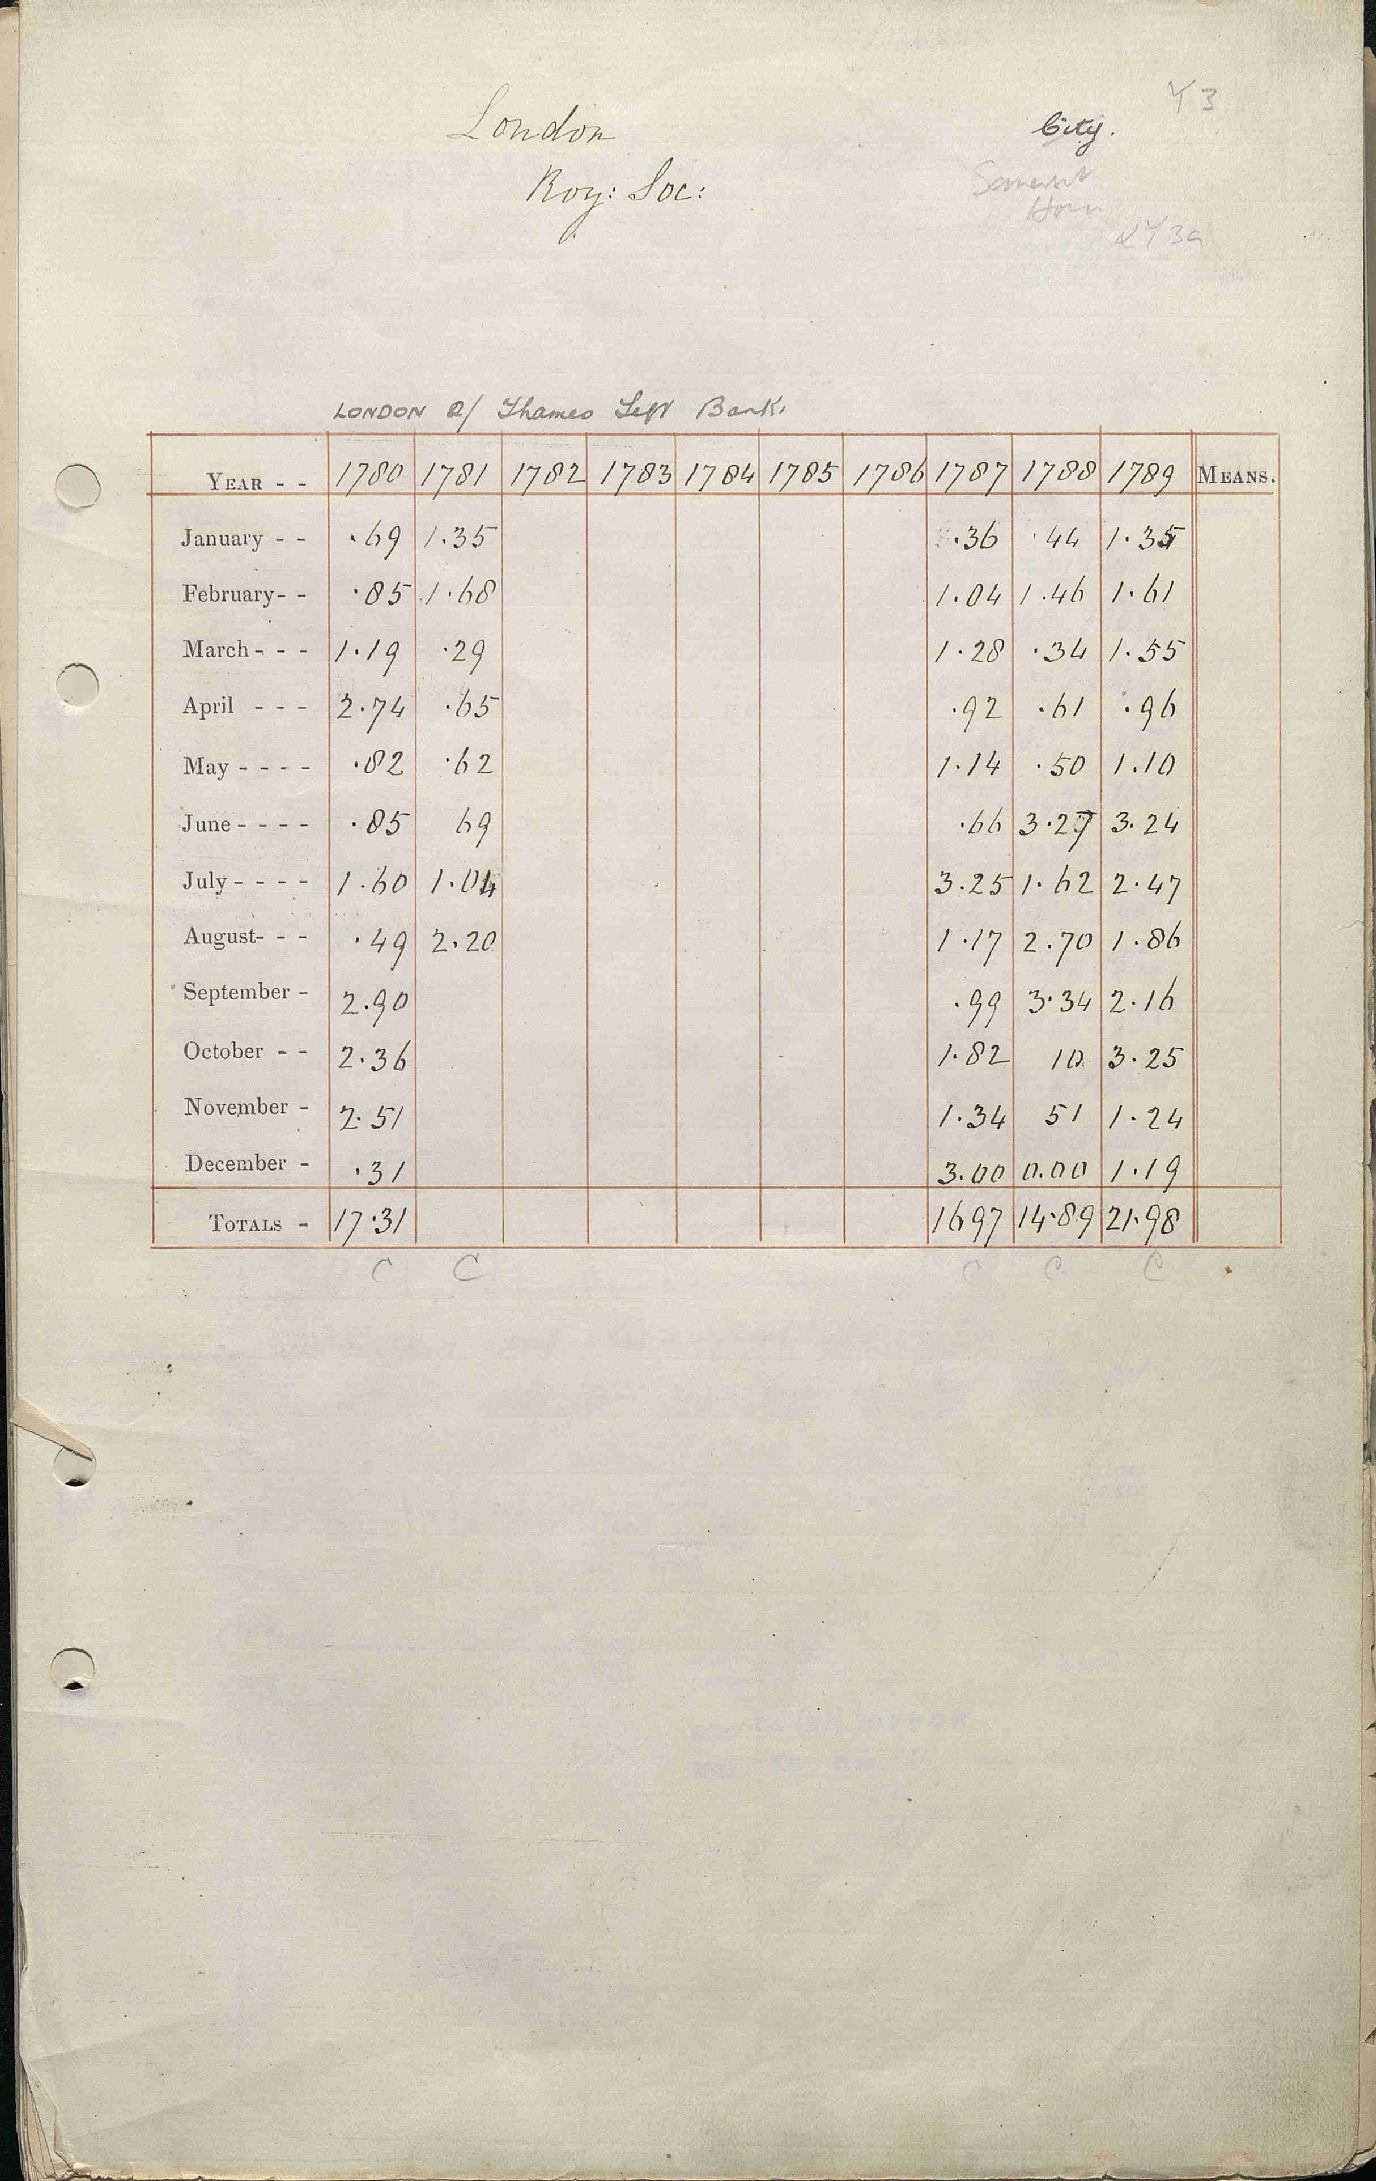 Y 3
London
City.
Roy: Soc:
Somerset
House
& Y 3a
LONDON 2/ Thames Left Bank.
YEAR - - 1780 1781 1782 1783 1784 1785 1786 1787 1788 1789 MEANS.
January - - .69 1.35 .36 .44 1.35
February - - .85 1.68 1.04 1.46 1.61
March - - - 1.19 .29 1.28 .34 1.55
April - - - 2.74 .65 .92 .61 .96
May - - - - .82 .62 1.14 .50 1.10
June - - - - .85 69 .66 3.27 3.24
July - - - - 1.60 1.04 3.25 1.62 2.47
August - - - .49 2.20 1.17 2.70 1.86
September - 2.90 .99 3.34 2.16
October - - 2.36 1.82 10 3.25
November - 2.51 1.34 51 1.24
December - .31 3.00 0.00 1.19
TOTALS - 17.31 1697 14.89 21.98
C C C C C